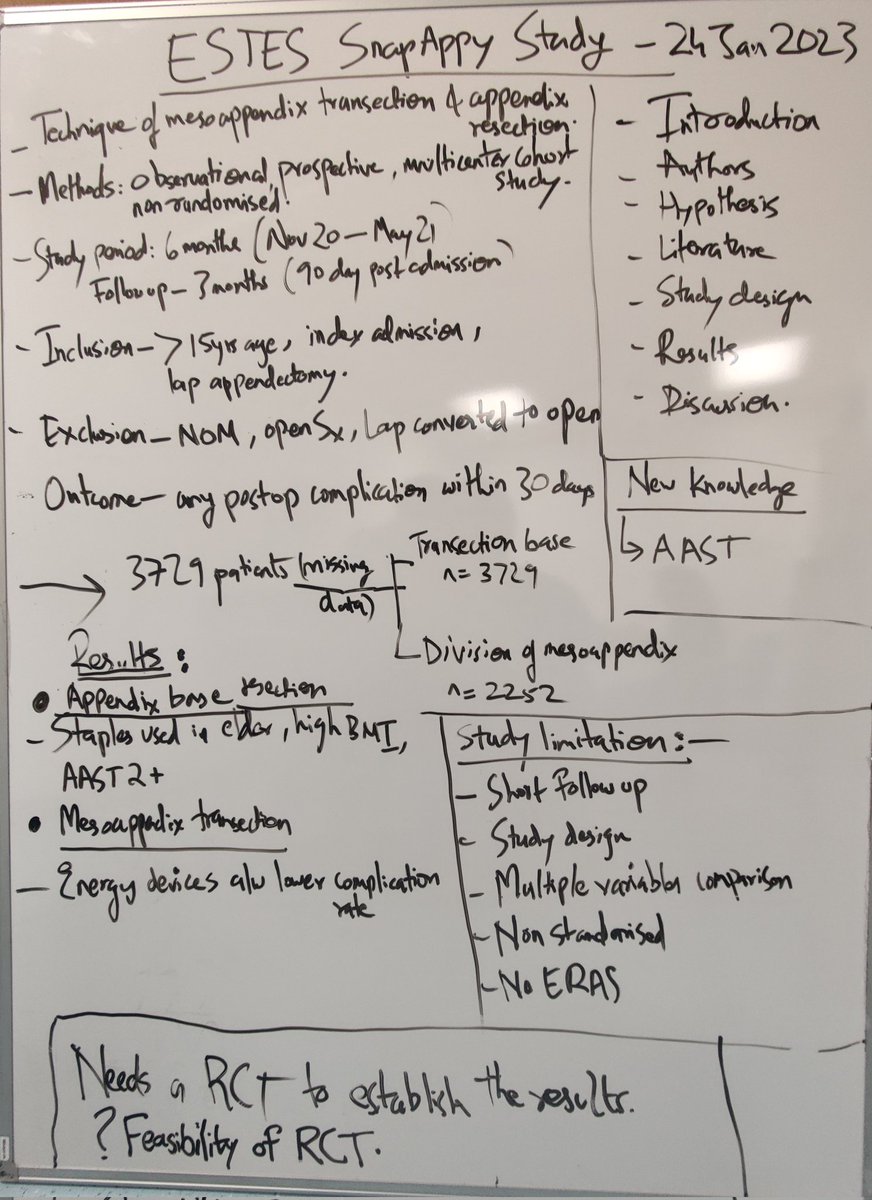 ESTES SnapAppy Study - 24 Jan 2023
- Technique of mesoappendix transection & appendix
resection.
- Methods: Observational, prospective, multicenter cohort
non-randomised. study.
- Study period: 6 months (Nov 20 - May 21)
Follow up - 3 months (90 day post admission)
- Inclusion - > 15yrs age, index admission,
lap appendectomy.
- Exclusion - NOM, open Sx, Lap converted to open
- Outcome - any postop complication within 30 days
→ 3729 patients (missing
data)
Transection base
n = 3729
Division of mesoappendix
n = 2252
Results :
• Appendix base resection
- Staples used in elder, high BMI,
AAST 2+
• Mesoappedix transection
- Energy devices a/w lower complication
rate
- Introduction
- Authors
- Hypothesis
- Literature
- Study design
- Results
- Discussion.
New Knowledge
↳ AAST
Study limitation: -
- Short Follow up
- Study design
- Multiple variables comparison
- Non standarised
- No ERAS
Needs a RCT to establish the results.
? Feasibility of RCT.